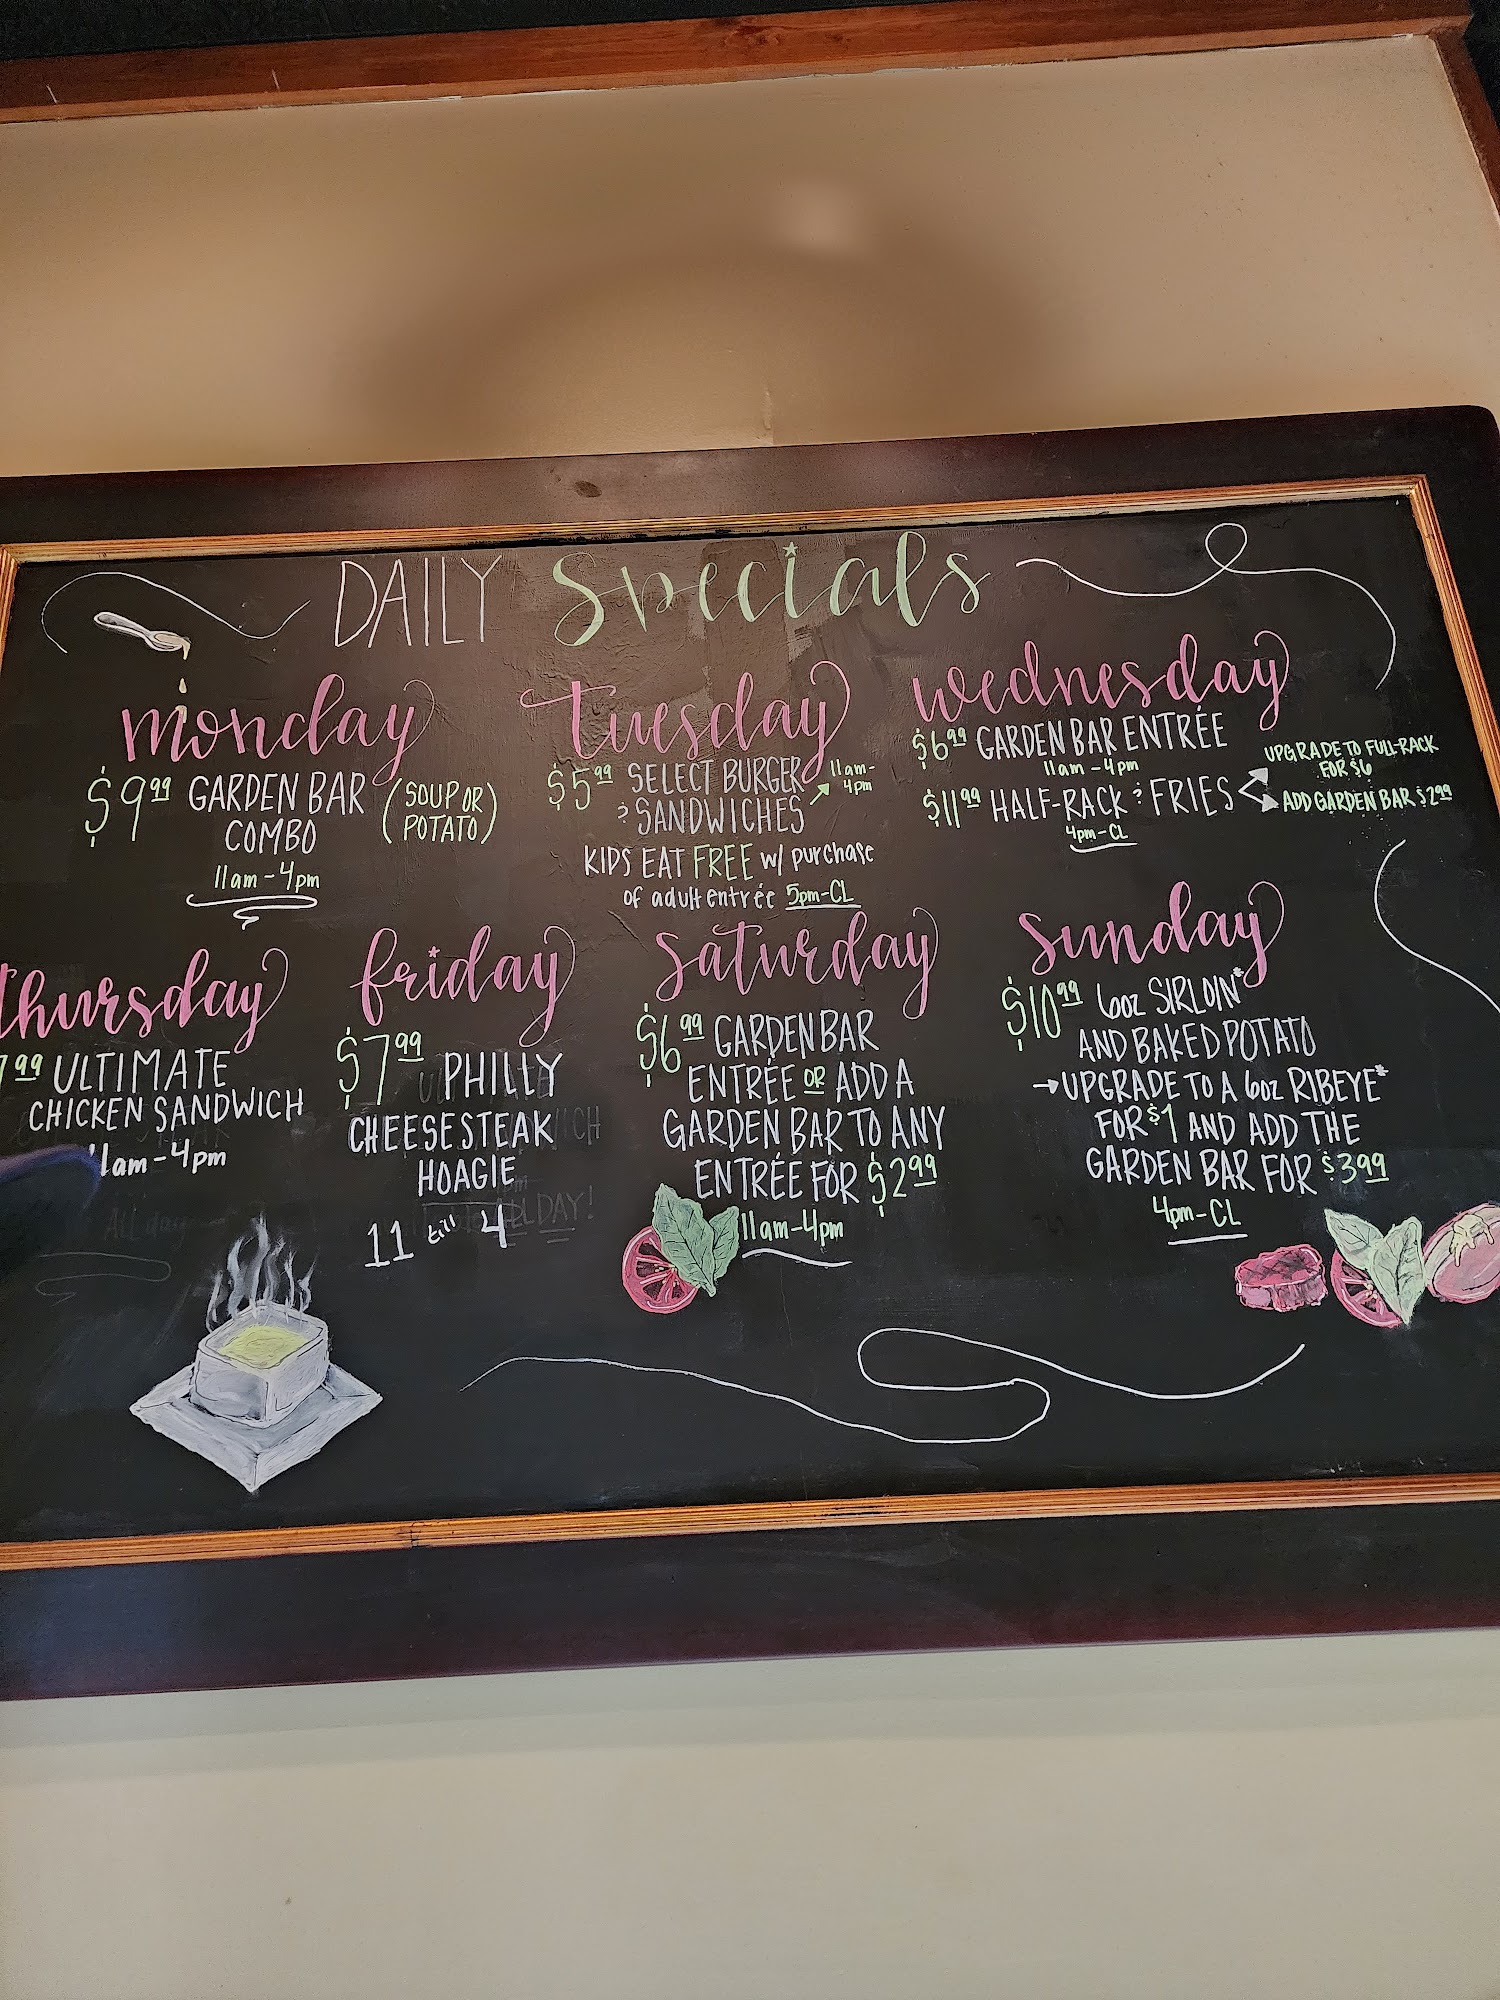 DAILY Specials
monday
$9.99 GARDEN BAR (SOUP OR
COMBO POTATO)
11am-4pm
tuesday
$5.99 SELECT BURGER 11am-
& SANDWICHES 4pm
KIDS EAT FREE w/ purchase
of adult entrée 5pm-CL
wednesday
$6.99 GARDEN BAR ENTRÉE
11am-4pm
$11.99 HALF-RACK & FRIES
4pm-CL
UPGRADE TO FULL-RACK
FOR $6
ADD GARDEN BAR $2.99
thursday
7.99 ULTIMATE
CHICKEN SANDWICH
11am-4pm
All day
friday
$7.99 PHILLY
CHEESESTEAK
HOAGIE
11 till 4
ALL DAY!
saturday
$6.99 GARDEN BAR
ENTRÉE OR ADD A
GARDEN BAR TO ANY
ENTRÉE FOR $2.99
11am-4pm
sunday
$10.99 6oz SIRLOIN*
AND BAKED POTATO
→UPGRADE TO A 6oz RIBEYE*
FOR $1 AND ADD THE
GARDEN BAR FOR $3.99
4pm-CL